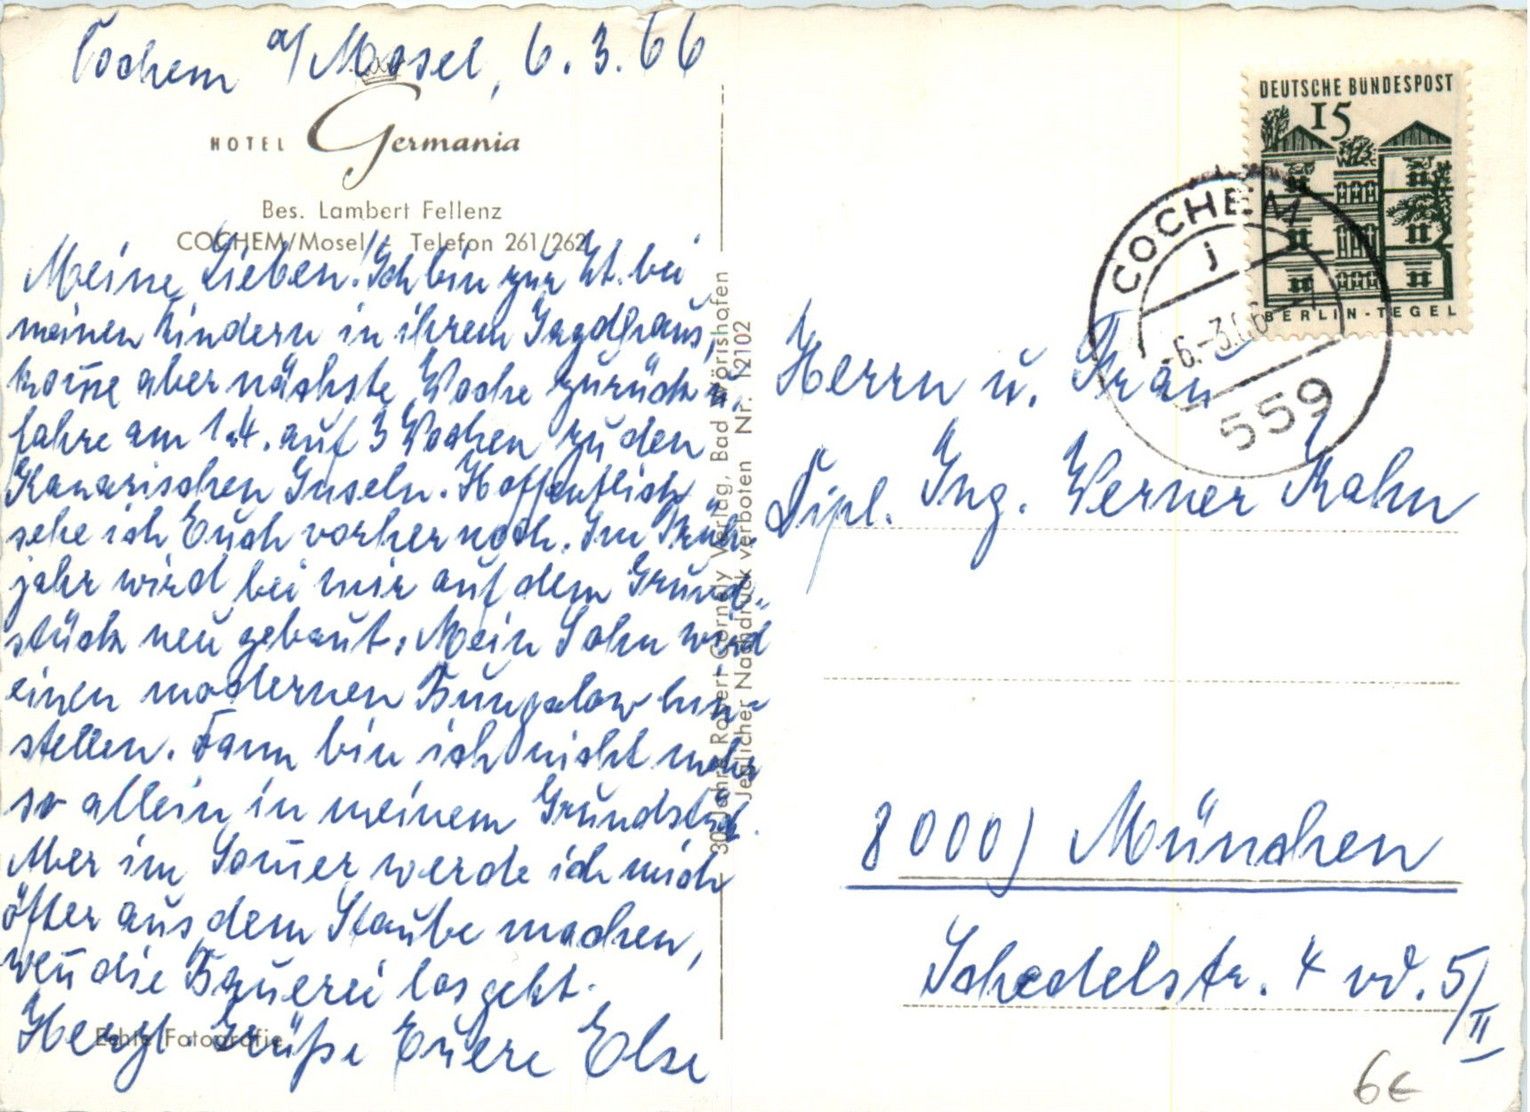 Cochem a/Mosel, 6.3.66
HOTEL Germania
Bes. Lambert Fellenz
COCHEM/Mosel Telefon 261/262
Meine Lieben! Ich bin zur Zt. bei
meinen Kindern in ihrem Jagdhaus,
kom̄e aber nächste Woche zurück u.
fahre am 1.4. auf 3 Wochen zu den
Kanarischen Inseln. Hoffentlich
sehe ich Euch vorher noch. Im Früh-
jahr wird bei mir auf dem Grund-
stück neu gebaut. Mein Sohn wird
einen modernen Bungalow hin-
stellen. Dann bin ich nicht mehr
so allein in meinem Grundstück.
Aber im Som̄er werde ich mich
öfter aus dem Staube machen,
wen̄ die Bauerei losgeht.
Herzl. Grüße Euere Else
Echte Fotografie
30 Jahre Robert Cornely Verlag, Bad Wörishofen
Jeglicher Nachdruck verboten Nr. 12102
DEUTSCHE BUNDESPOST
15
BERLIN-TEGEL
COCHEM
j
-6.-3.66
559
Herrn u. Frau
Dipl. Ing. Werner Rahn
8000) München
Schedelstr. 4 od. 5/II
6€